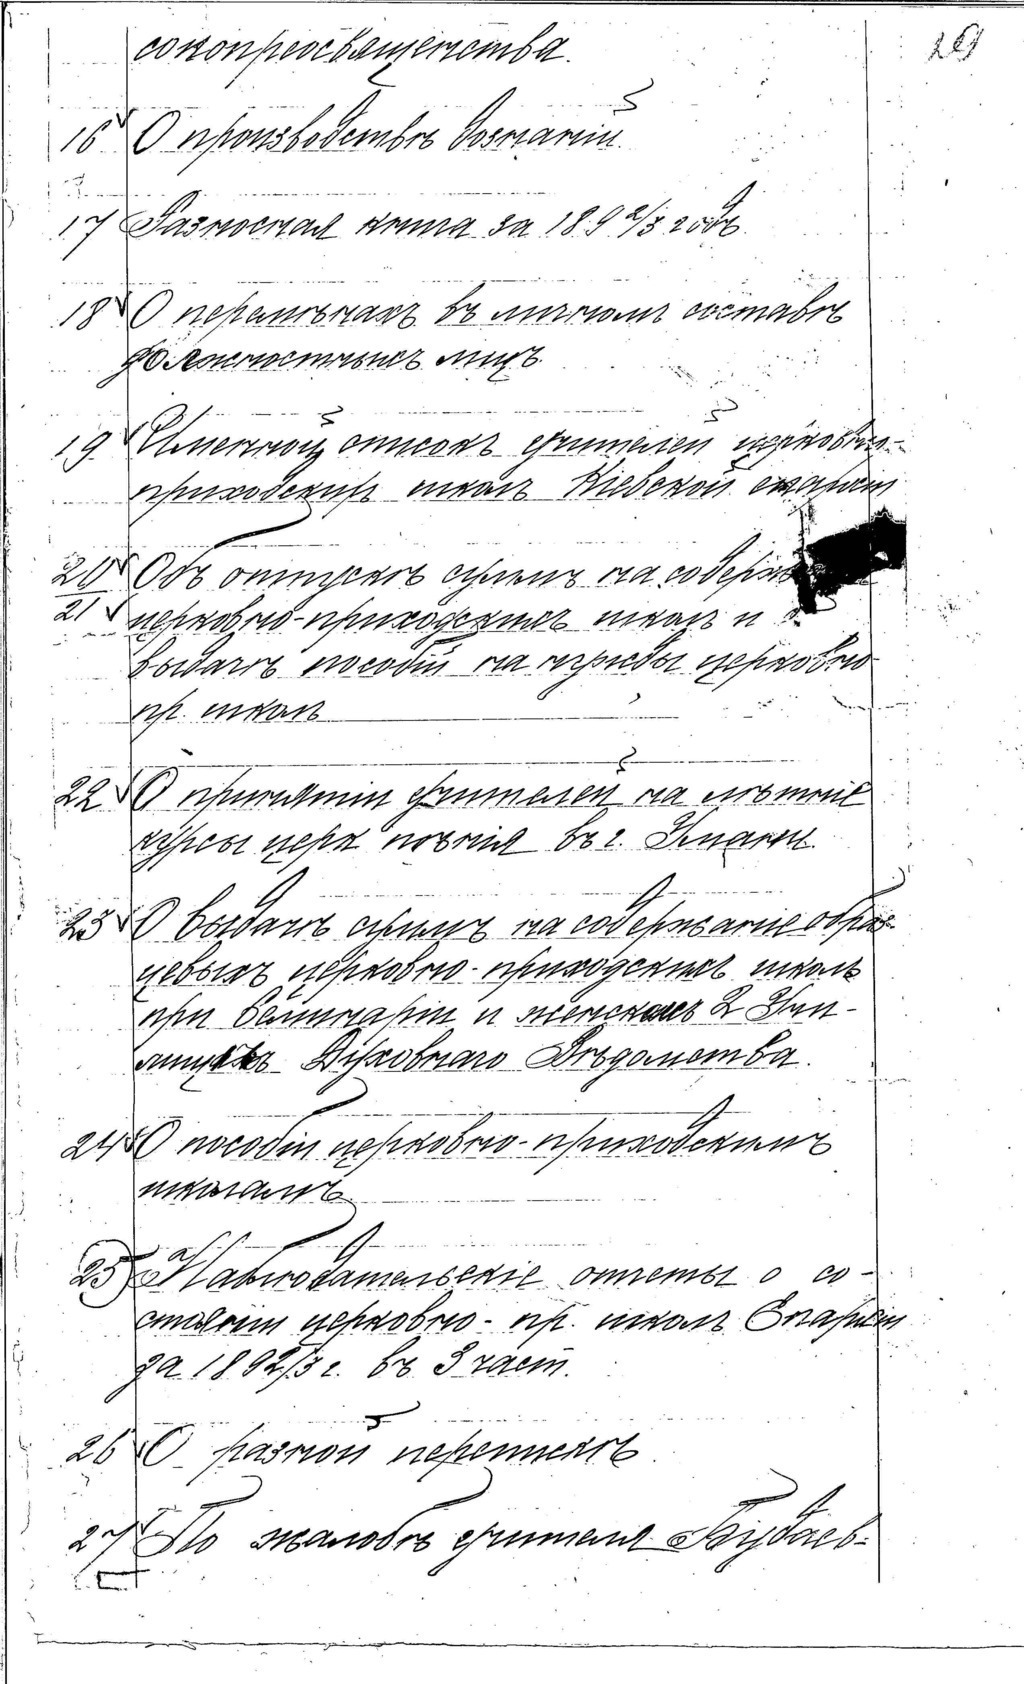 сокопреосвященства.
16 О производствѣ дознаній.
17 Разносная книга за 1892/3 годъ.
18 О перемѣнахъ въ личномъ составѣ
должностныхъ лицъ.
19 Именной списокъ учителей церковно-
приходскихъ школъ Кіевской епархіи
20 Объ отпускѣ суммъ на содерж
21 церковно-приходскихъ школъ и
выдачѣ пособій на нужды церковно
пр. школъ
22 О принятіи учителей на лѣтніе
курсы церк пѣнія въ г. Умани.
23 О выдачѣ суммъ на содержаніе образ-
цевыхъ церковно-приходскихъ школъ
при Семинаріи и женскихъ 2 Учи-
лищахъ Духовнаго Вѣдомства.
24 О пособіи церковно-приходскимъ
школамъ.
25 Наблюдательскіе отчеты о со-
стояніи церковно-пр. школъ Епархіи
за 1892/3 г. въ 3 част.
26 О разной перепискѣ.
27 По жалобѣ учителя Будаев-